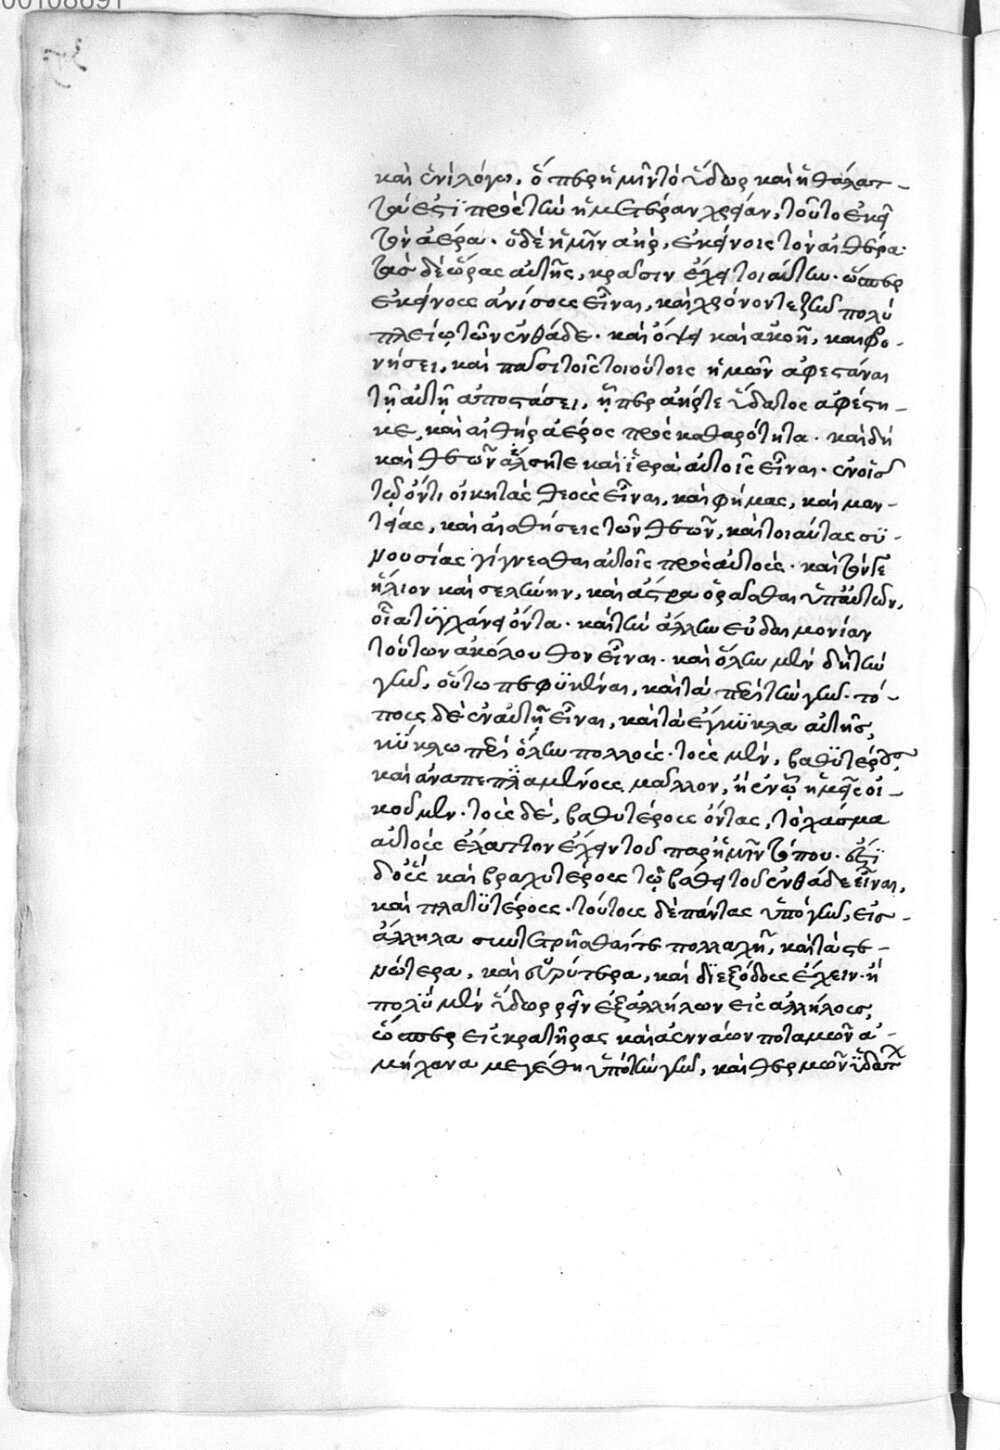 00108691
καὶ ἑνὶ λόγῳ, ὅπερ ἡμῖν τὸ ὕδωρ καὶ ἡ θάλατ-
τά ἐστι πρὸς τὴν ἡμετέραν χρείαν, τοῦτο ἐκεῖ
τὸν ἀέρα. ὃ δὲ ἡμῖν ἀὴρ, ἐκείνοις τὸν αἰθέρα.
τὰς δὲ ὥρας αὐτῆς, κρᾶσιν ἔχει τοιαύτην. ὥσπερ
ἐκείνους ἀνόσους εἶναι, καὶ χρόνον τε ζῆν πολὺ
πλείω τῶν ἐνθάδε. καὶ ὄψει καὶ ἀκοῇ, καὶ φρο-
νήσει, καὶ πᾶσι τοῖς τοιούτοις ἡμῶν ἀφεστάναι
τῇ αὐτῇ ἀποστάσει, ᾗπερ ἀήρ τε ὕδατος ἀφέστη-
κε, καὶ αἰθὴρ ἀέρος πρὸς καθαρότητα. καὶ δὴ
καὶ θεῶν ἄλση τε καὶ ἱερὰ αὐτοῖς εἶναι. ἐν οἷς
τῷ ὄντι οἰκητὰς θεοὺς εἶναι, καὶ φήμας, καὶ μαν-
τείας, καὶ αἰσθήσεις τῶν θεῶν, καὶ τοιαύτας συ-
νουσίας γίγνεσθαι αὐτοῖς πρὸς αὐτούς. καὶ τόν γε
ἥλιον καὶ σελήνην, καὶ ἄστρα ὁρᾶσθαι ὑπ' αὐτῶν,
οἷα τυγχάνει ὄντα. καὶ τὴν ἄλλην εὐδαιμονίαν
τούτων ἀκόλουθον εἶναι. καὶ ὅλην μὲν δὴ τὴν
γῆν, οὕτω πεφυκέναι, καὶ τὰ περὶ τὴν γῆν. τό-
πους δὲ ἐν αὐτῇ εἶναι, κατὰ τὰ ἔγκυκλα αὐτῆς,
κύκλῳ περὶ ὅλην πολλούς. τοὺς μὲν, βαθυτέρους,
καὶ ἀναπεπταμένους μᾶλλον, ἢ ἐν ᾧ ἡμεῖς οἰ-
κοῦμεν. τοὺς δὲ, βαθυτέρους ὄντας, τὸ χάσμα
αὐτοὺς ἔλαττον ἔχειν τοῦ παρ' ἡμῖν τόπου. ἔστι
δ' οὓς καὶ βραχυτέρους τῷ βάθει τοῦ ἐνθάδε εἶναι,
καὶ πλατυτέρους. τούτους δὲ πάντας ὑπὸ γῆν, εἰς
ἄλληλα συντετρῆσθαί τε πολλαχῇ, κατὰ στε-
νώτερα, καὶ εὐρύτερα, καὶ διεξόδους ἔχειν. ᾗ
πολὺ μὲν ὕδωρ ῥεῖν ἐξ ἀλλήλων εἰς ἀλλήλους,
ὥσπερ εἰς κρατῆρας καὶ ἀεννάων ποταμῶν ἀ-
μήχανα μεγέθη ὑπὸ τὴν γῆν, καὶ θερμῶν ὑδάτων